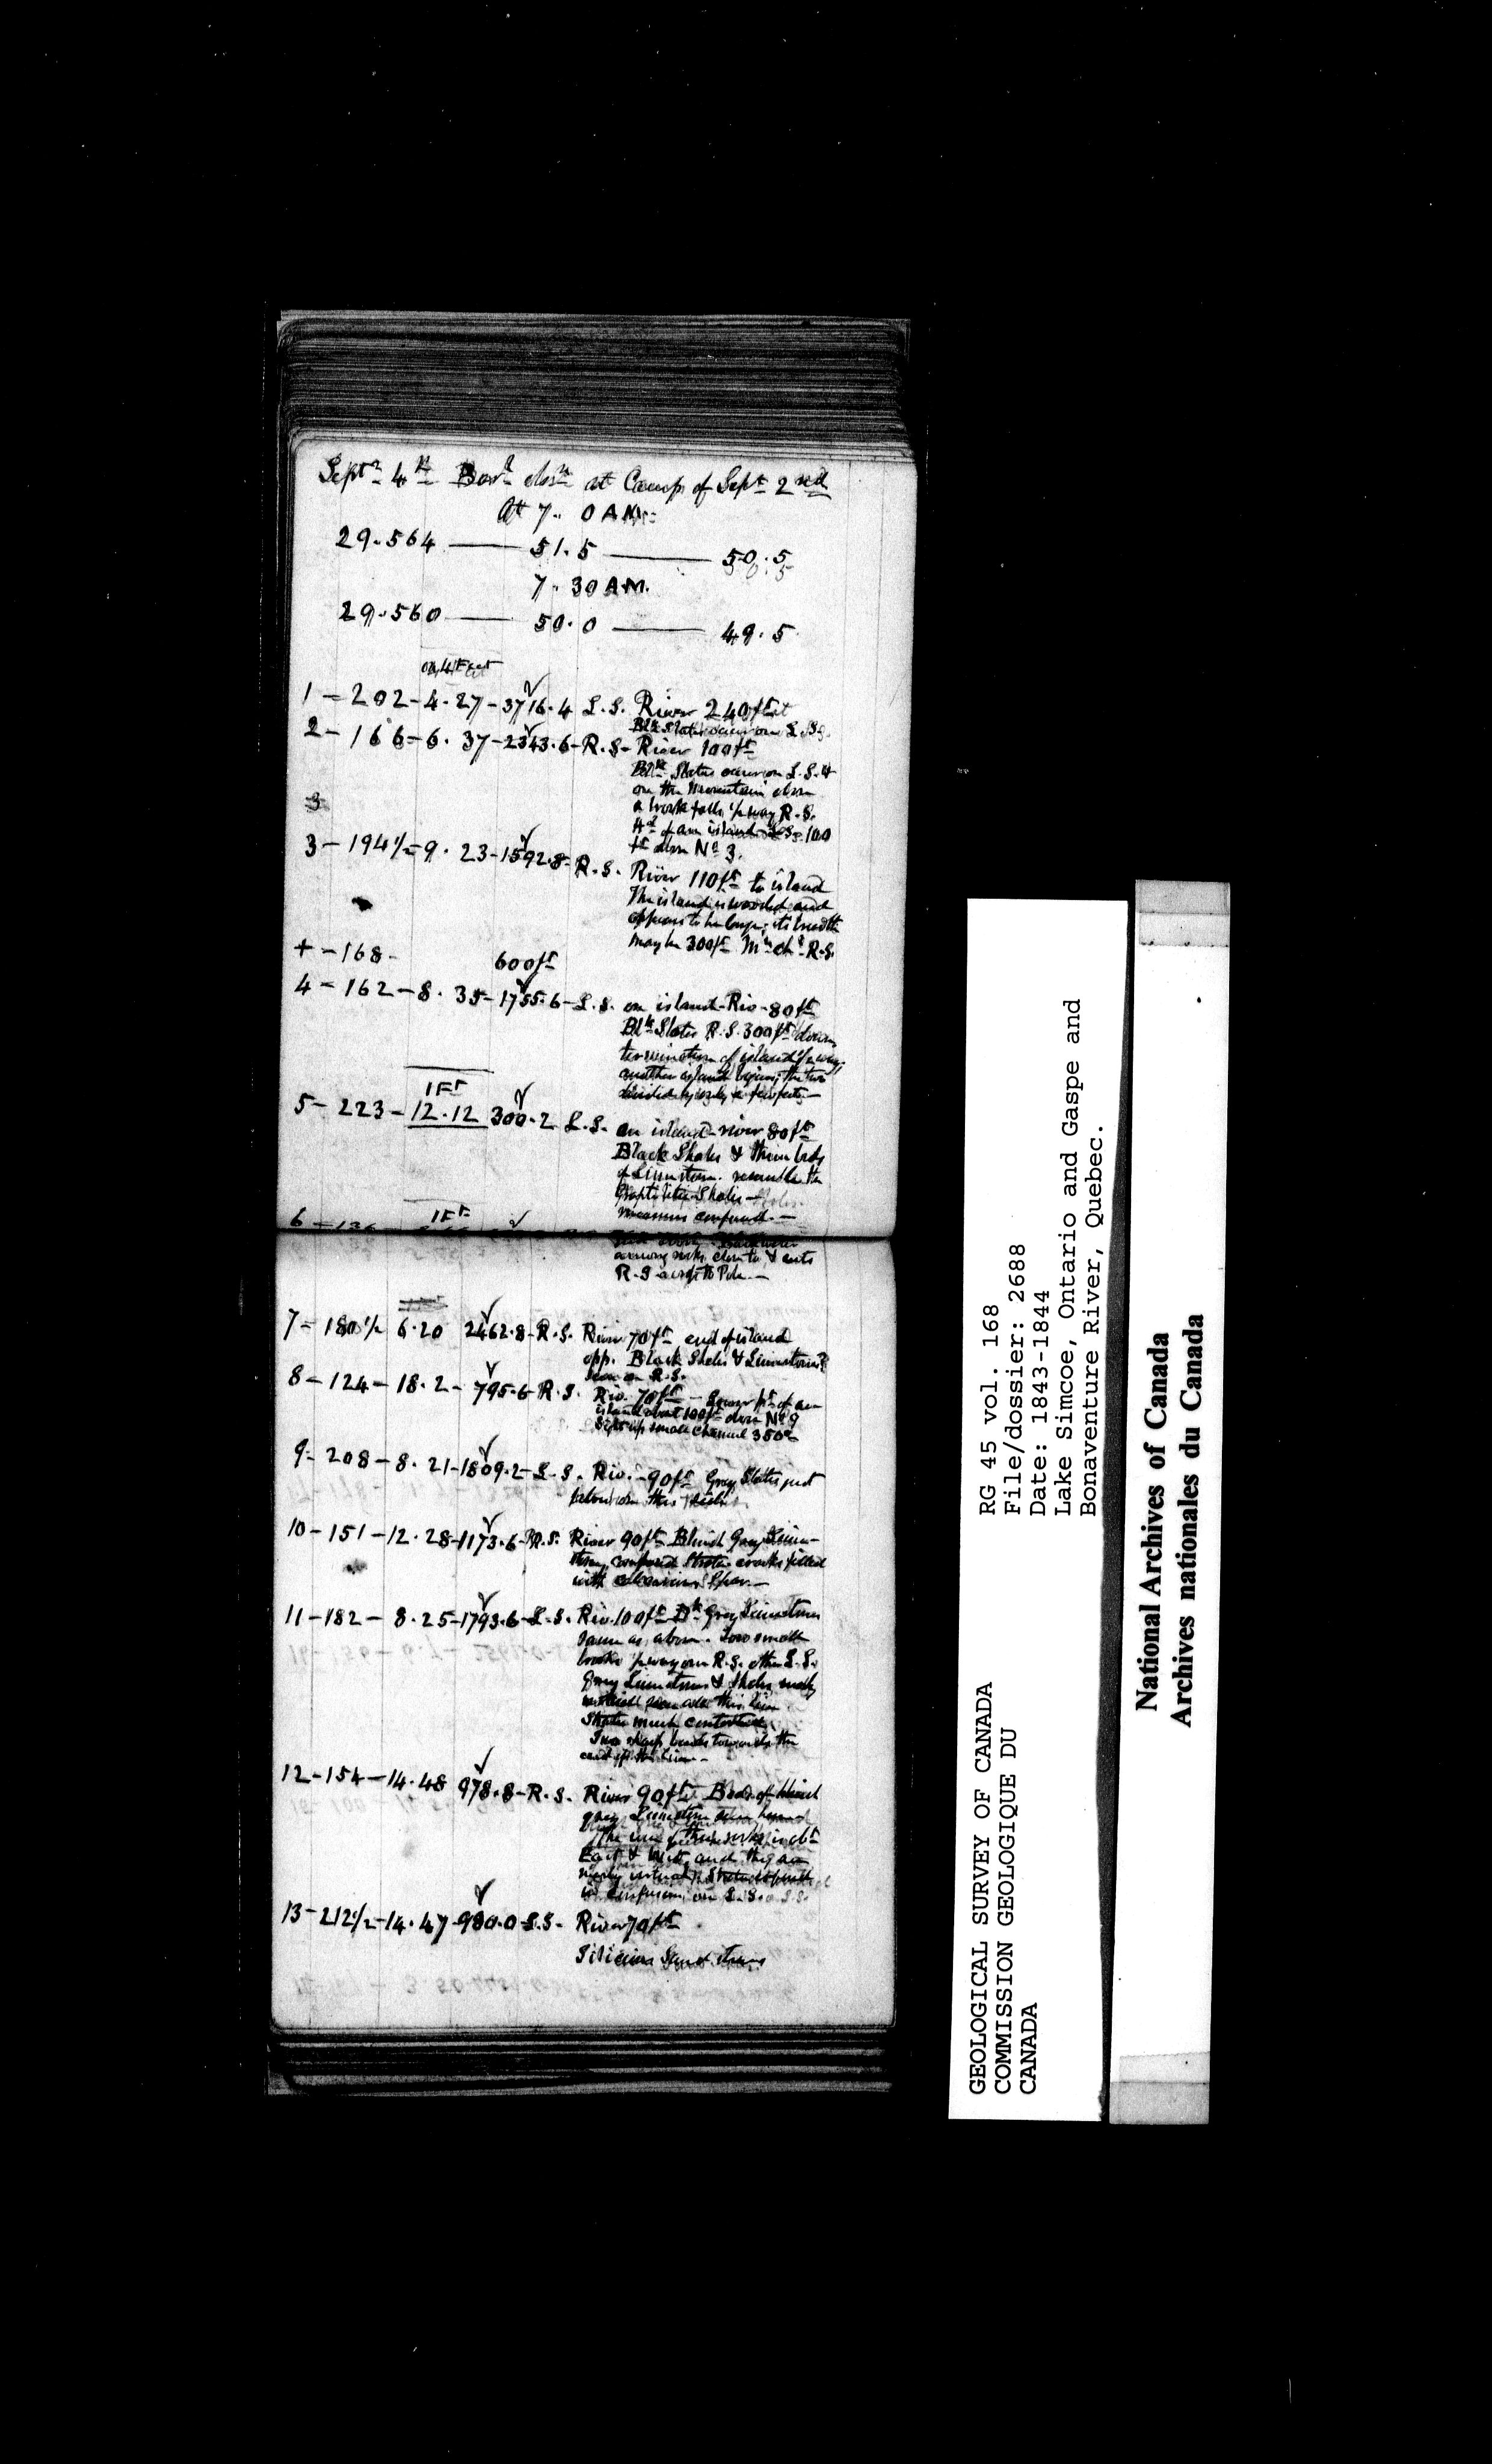 Septr 4th Bar obsn at Camp of Sept 2nd
At 7.. 0 A.M.
29.564 — 51.5 — 50.5
7.. 30 A.M.
29.560 — 50.0 — 49.5
on 4 Feet
1 - 202 - 4.27 - 3716.4 L.S. River 240 ft
Blk Slates occur on L.S.
2 - 166 - 6.37 - 2343.6 - R.S - River 100 ft
Blk Slates occur on L.S. &
on the Mountain above
a brook falls ½ way R.S.
Hd of an island L.S. 100
ft above No 3.
3
3 - 194½ - 9.23 - 1592.8 - R.S. River 110 ft to island
The island is wooded and
appears to be large; its breadth
may be 300 ft Mn chl R.S.
+ - 168 - 600 ft
4 - 162 - 8.35 - 1755.6 - L.S. on island - Riv - 80 ft
Blk Slates R.S. 300 ft down
termination of island ½ way
another island begins; the two
divided by only a few feet —
1 Ft
5 - 223 - 12.12 300.2 L.S. on island - river 80 ft
Black Shales & thin beds
of Limestone. resemble the
Graptolitic Shales —
measures confused. —
1 Ft
6 - 136
R.S
7 - 180½ 6.20 2462.8 - R.S. River 70 ft end of island
opp. Black Shales & Limestones
seen on R.S.
8 - 124 - 18.2 - 795.6 R.S. Riv. 70 ft — Lower pt of an
island about 100 ft above No 9
Sight up small channel 350°
9 - 208 - 8.21 - 1809.2 - L.S. Riv. - 90 ft Gray Slates just
below on this side
10 - 151 - 12.28 - 1173.6 - R.S. River 90 ft Bluish Gray Lime-
stone, confused Strata cracks filled
with calcareous Spar —
11 - 182 - 8.25 - 1793.6 - L.S. Riv. 100 ft Dk Gray Limestone
same as above. Two small
brooks ½ way one R.S. other L.S.
Gray Limestones & Shales nearly
vertical seen all this line
Strata much contorted
Two sharp bends towards the
end of the line —
12 - 154 - 14.48 978.8 - R.S. River 90 ft Beds of bluish
gray Limestone
The run of these rocks is abt
East & West, and they are
nearly vertical, Strata
in confusion on L.S.
13 - 212½ - 14.47 - 980.0 - L.S. - River 70 ft
Silicious Sandstones
RG 45 vol. 168
File/dossier: 2688
Date: 1843-1844
Lake Simcoe, Ontario and Gaspe and
Bonaventure River, Quebec.
GEOLOGICAL SURVEY OF CANADA
COMMISSION GEOLOGIQUE DU
CANADA
National Archives of Canada
Archives nationales du Canada